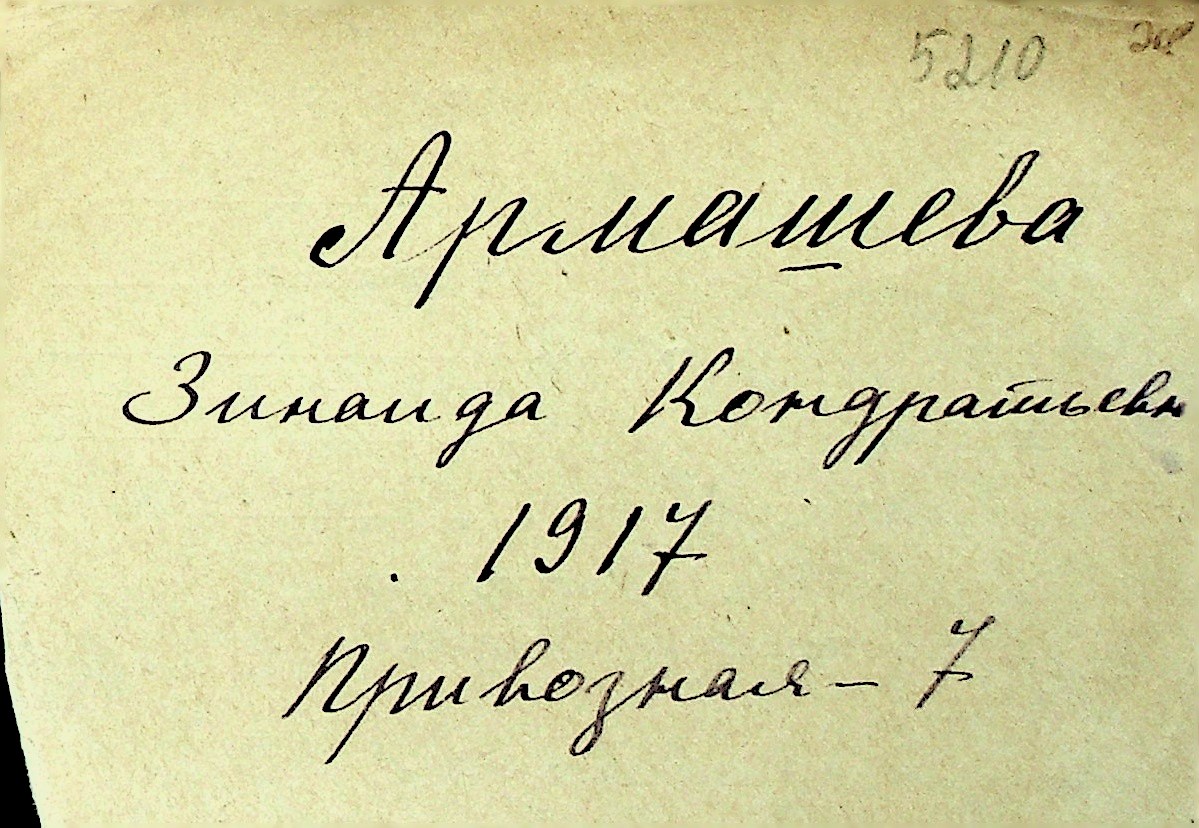 5210
Армашева
Зинаида Кондратьевн
1917
Привозная – 7